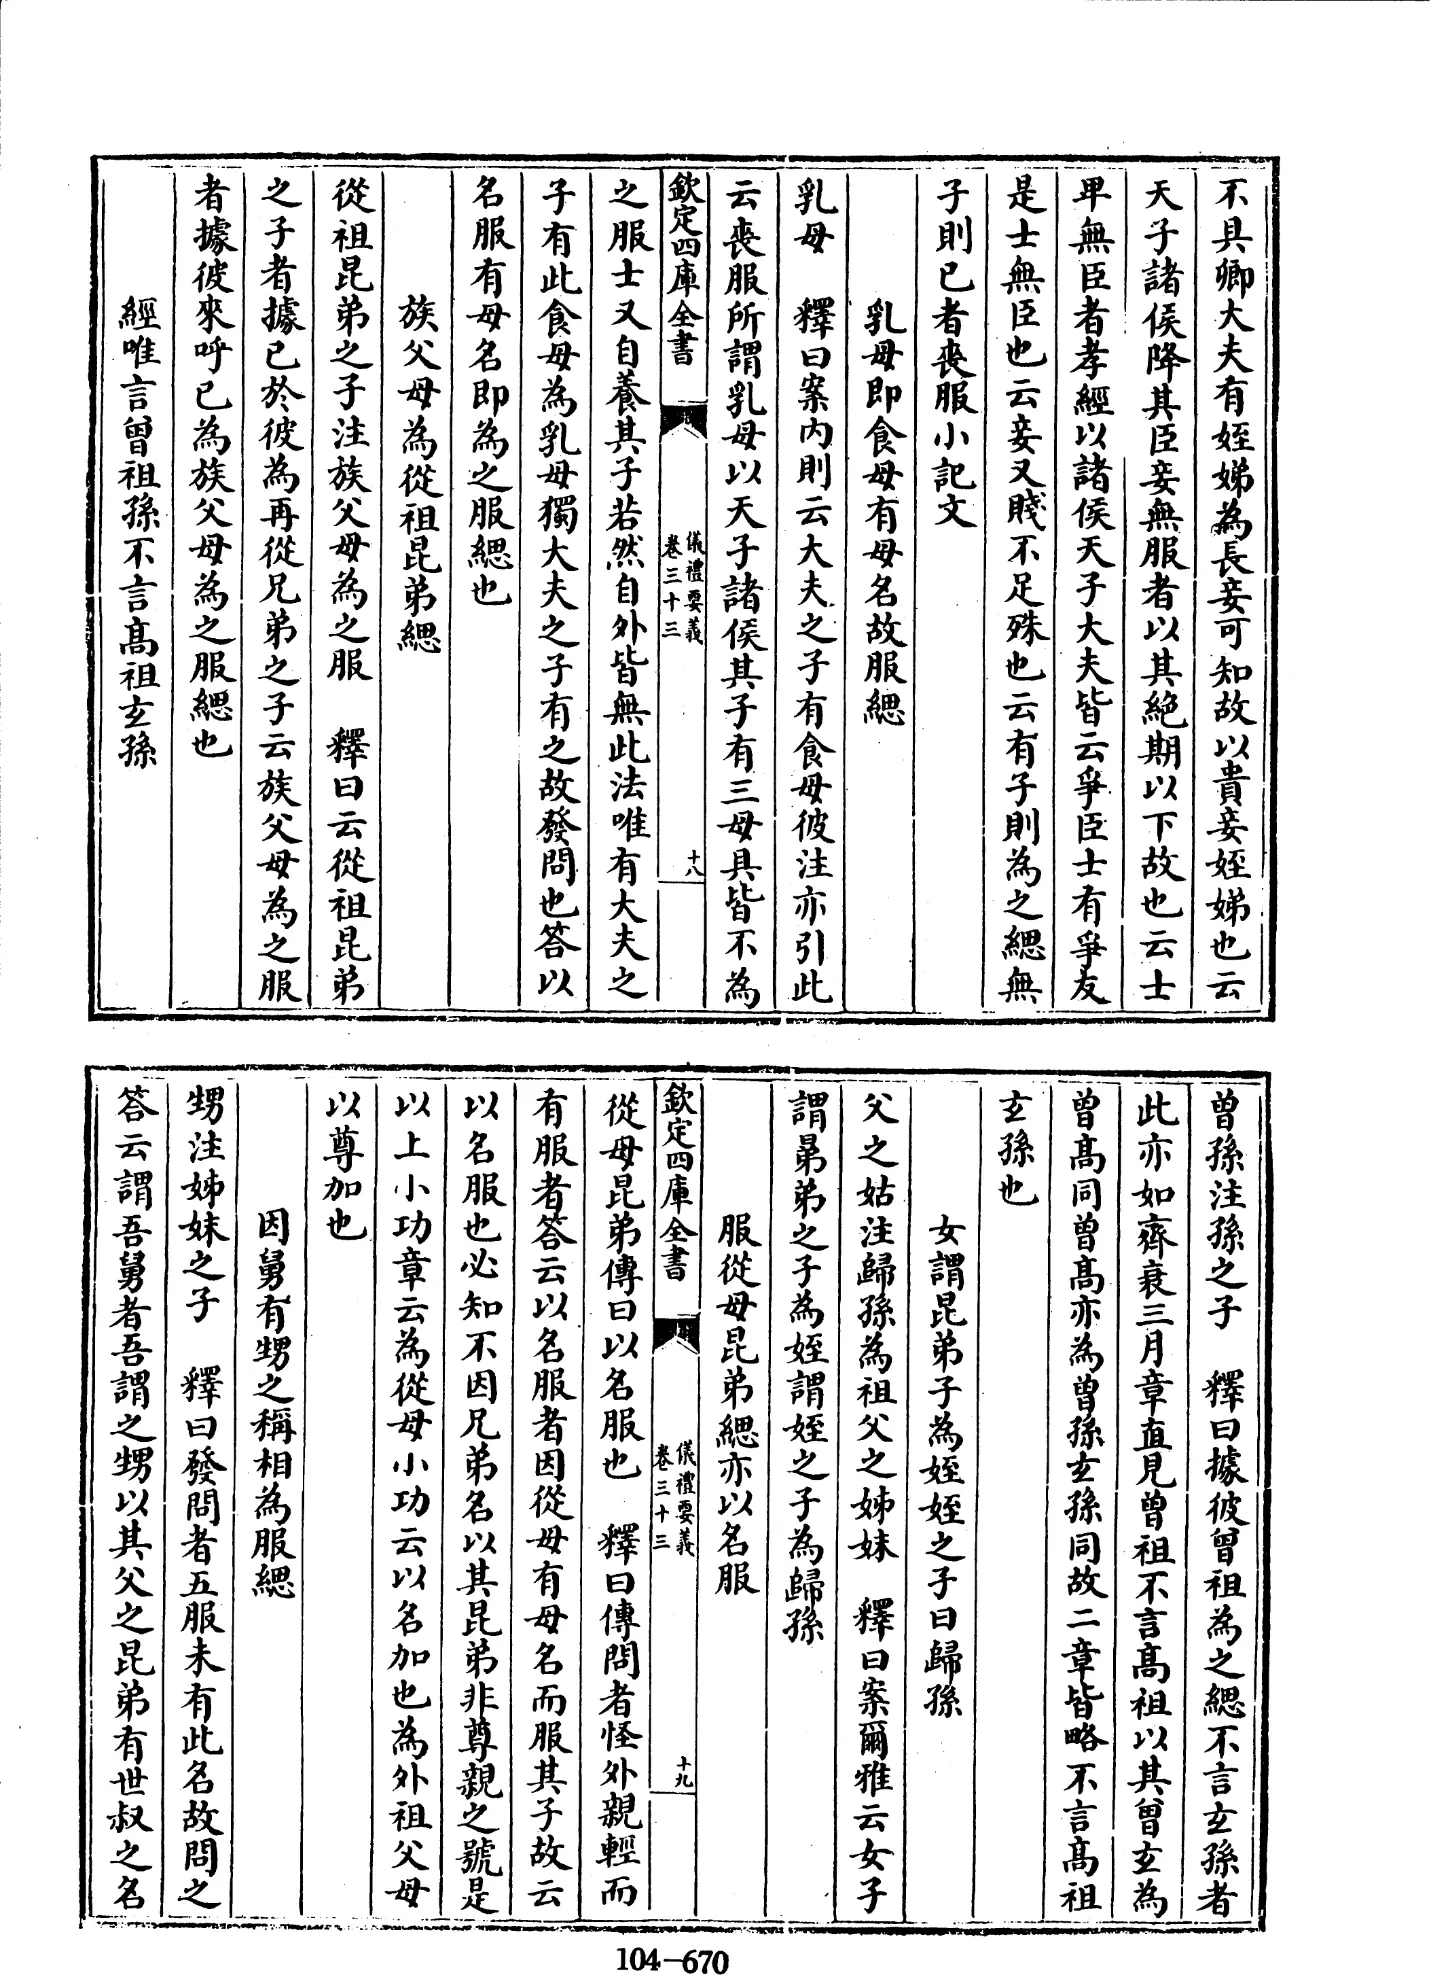 不具卿大夫有姪娣為長妾可知故以貴妾姪娣也云
天子諸侯降其臣妾無服者以其絶期以下故也云士
卑無臣者孝經以諸侯天子大夫皆云爭臣士有爭友
是士無臣也云妾又賤不足殊也云有子則為之緦無
子則已者喪服小記文
乳母即食母有母名故服緦
乳母　釋曰案内則云大夫之子有食母彼注亦引此
云喪服所謂乳母以天子諸侯其子有三母具皆不為
欽定四庫全書
儀禮要義
卷三十三
十八
之服士又自養其子若然自外皆無此法唯有大夫之
子有此食母為乳母獨大夫之子有之故發問也答以
名服有母名即為之服緦也
族父母為從祖昆弟緦
從祖昆弟之子注族父母為之服　釋曰云從祖昆弟
之子者據已於彼為再從兄弟之子云族父母為之服
者據彼來呼已為族父母為之服緦也
經唯言曾祖孫不言髙祖𤣥孫
曾孫注孫之子　釋曰據彼曾祖為之緦不言𤣥孫者
此亦如齊衰三月章直見曾祖不言髙祖以其曾𤣥為
曾髙同曾髙亦為曾孫𤣥孫同故二章皆略不言髙祖
𤣥孫也
女謂昆弟子為姪姪之子曰歸孫
父之姑注歸孫為祖父之姊妹　釋曰案爾雅云女子
謂晜弟之子為姪謂姪之子為歸孫
服從母昆弟緦亦以名服
欽定四庫全書
儀禮要義
卷三十三
十九
從母昆弟傳曰以名服也　釋曰傳問者怪外親輕而
有服者答云以名服者因從母有母名而服其子故云
以名服也必知不因兄弟名以其昆弟非尊親之號是
以上小功章云為從母小功云以名加也為外祖父母
以尊加也
因舅有甥之稱相為服緦
甥注姊妹之子　釋曰發問者五服未有此名故問之
答云謂吾舅者吾謂之甥以其父之昆弟有世叔之名
104—670